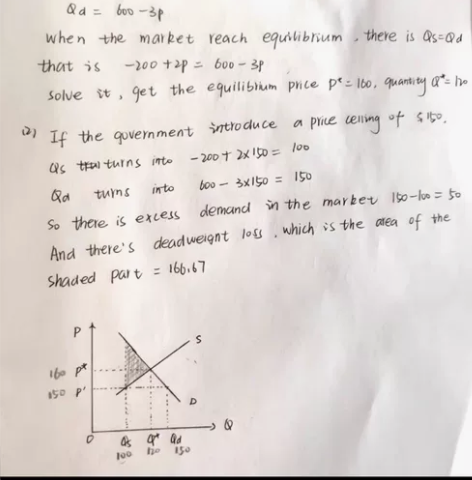 Qd = 600-3p
When the market reach equilibrium, there is Qs=Qd
that is -200+2p = 600-3p
solve it, get the equilibrium price P*=160, quantity Q*=120
(2) If the government introduce a price ceiling of $150.
Qs turns into -200+2×150 = 100
Qd turns into 600-3×150 = 150
So there is excess demand in the market 150-100=50
And there's deadweight loss, which is the area of the
shaded part = 166.67
P
S
160 P*
150 P'
D
0 Qs Q* Qd Q
100 120 150